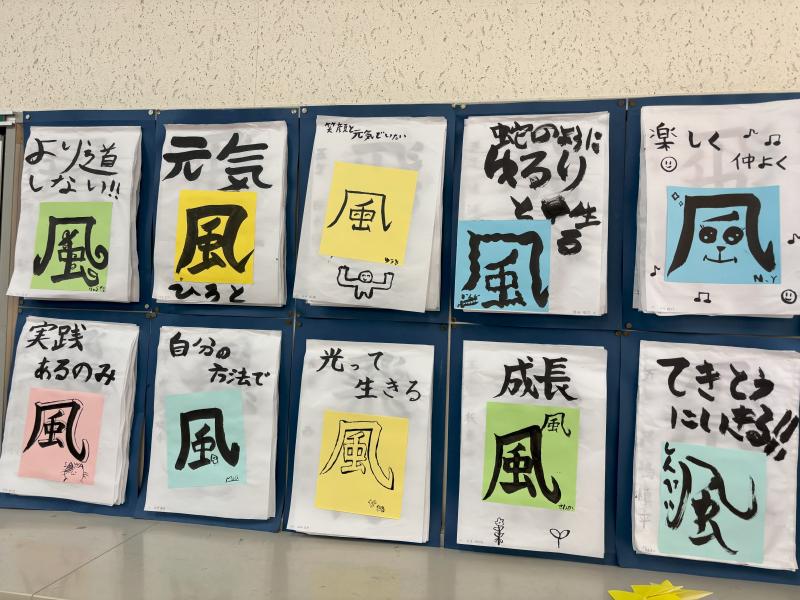 より道
しない!!
風
元気
風
ひろと
笑顔で元気でいたい
風
ゆうき
蛇のように
ゆるり
と
生
る
風
楽しく
仲よく
風
N.Y
実践
あるのみ
風
自分の
方法で
風
光って
生きる
風
成長
風
風
てきとう
にいきる!!
しんけん
風